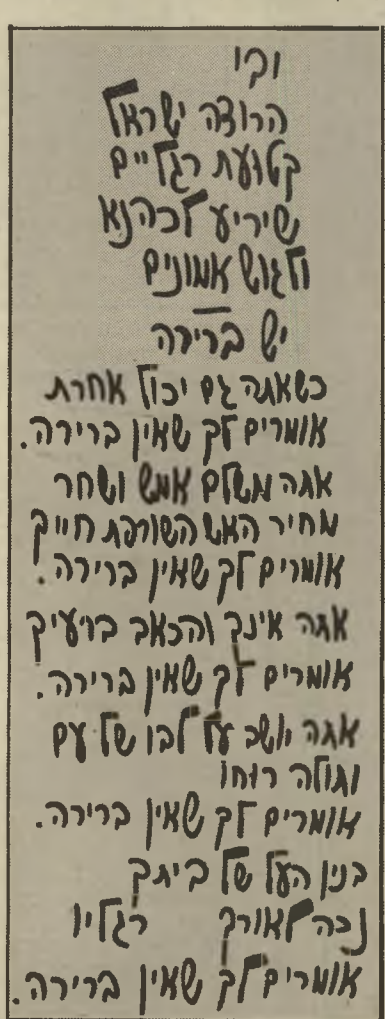 הרוצה ישראל
קטועת רגליים
שיריע לכהנא
ולגוש אמונים
—
יש ברירה
כשאתה גם יכול אחרת
אומרים לך שאין ברירה.
אתה משלם אמש ושחר
מחיר האש השורפת חייך
אומרים לך שאין ברירה.
אתה אינך והכאב ברעיך
אומרים לך שאין ברירה.
אתה יושב על לבו של עם
ותולה רוחו
אומרים לך שאין ברירה.
בנין העל של ביתך
נכה לאורך רגליו
אומרים לך שאין ברירה.